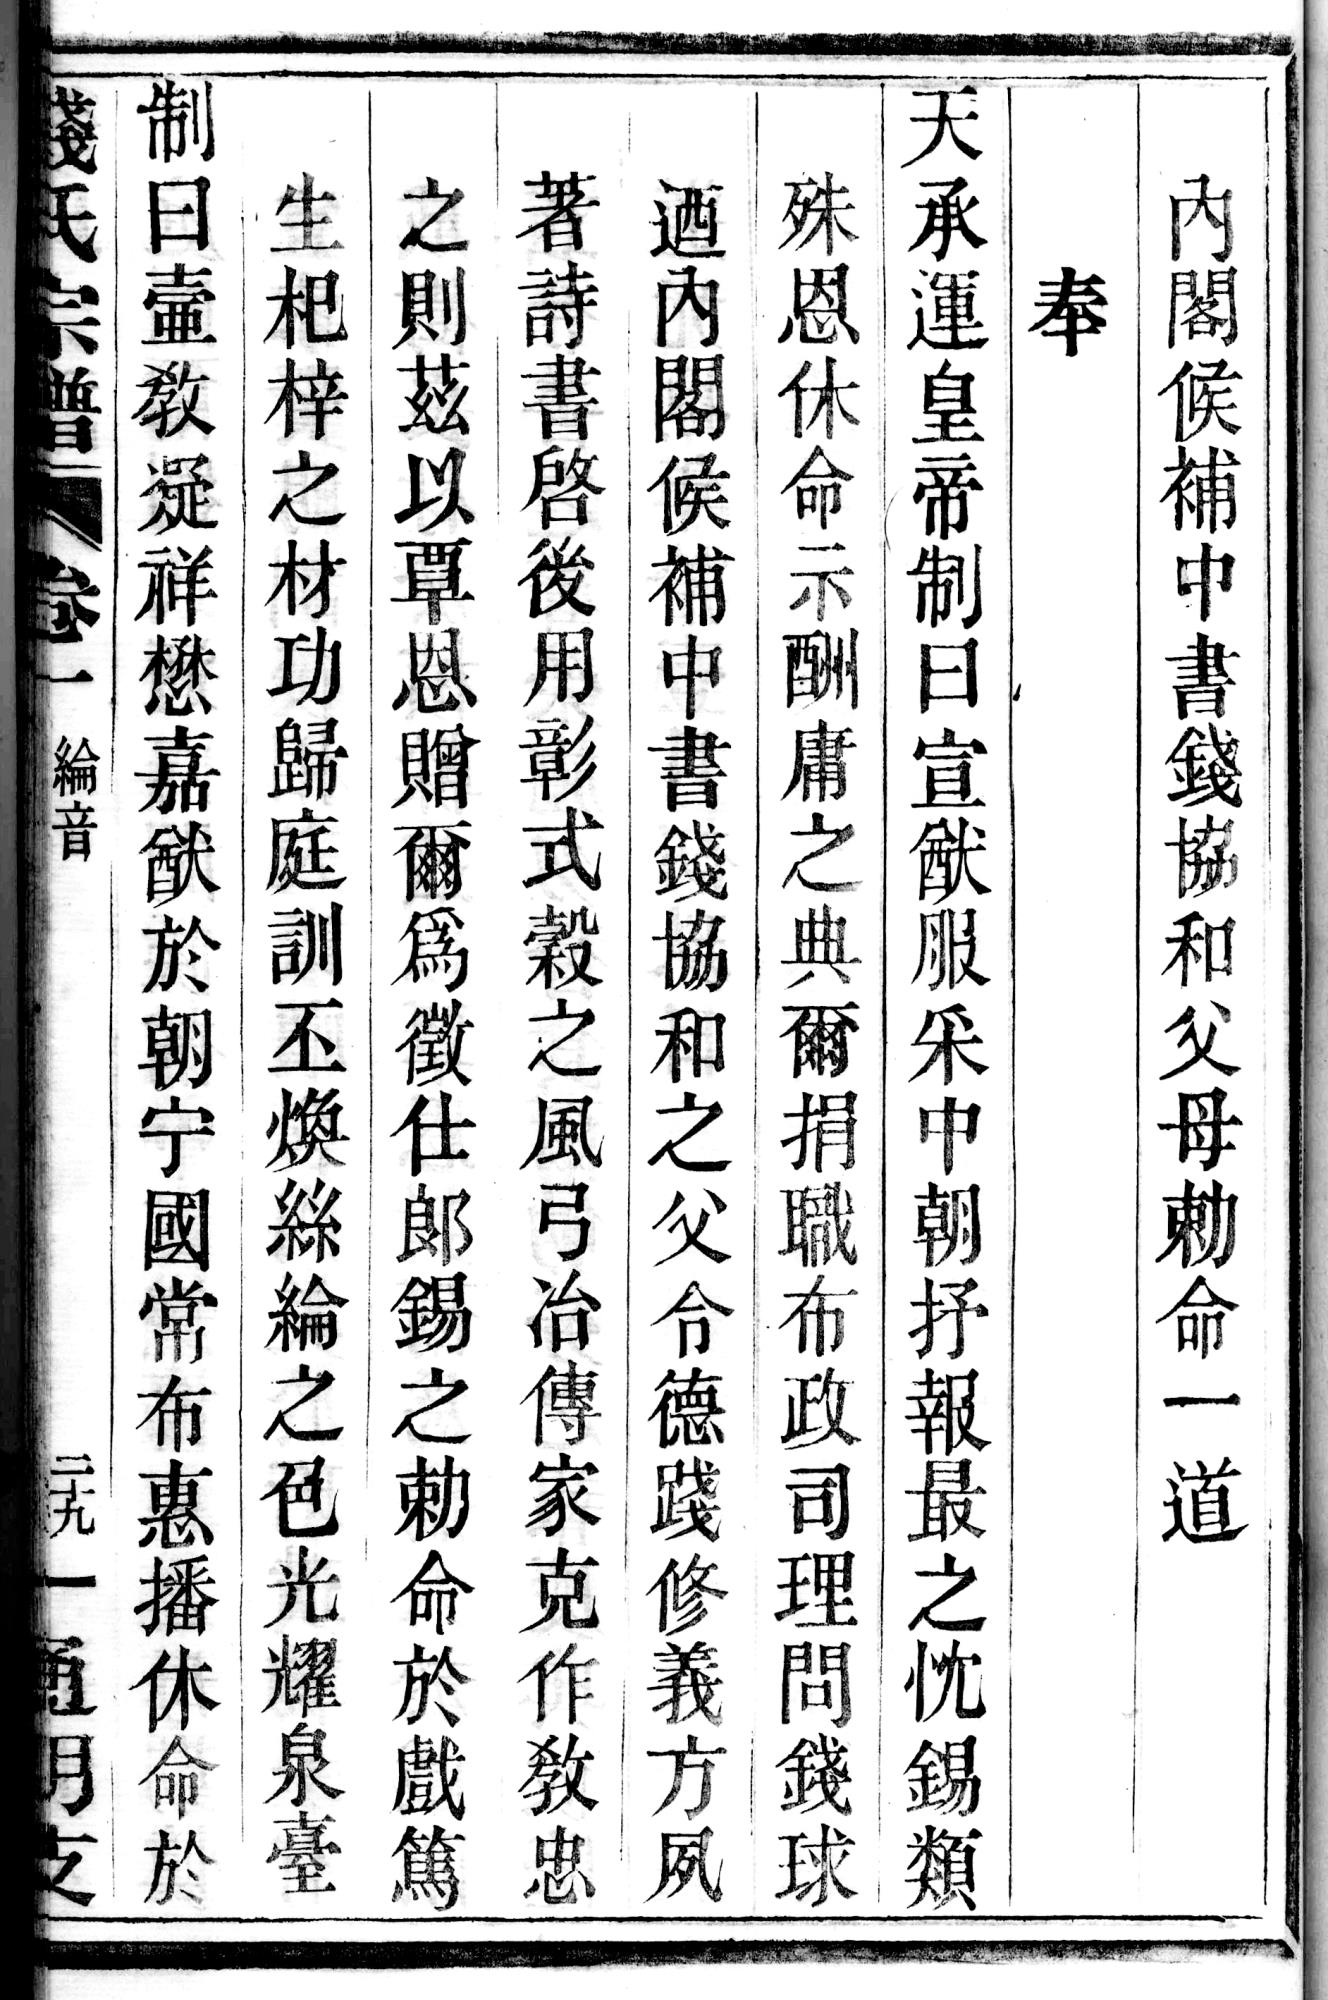 內閣候補中書錢協和父母勅命一道
奉
天承運皇帝制曰宣猷服采中朝抒報最之忱錫類
殊恩休命示酬庸之典爾捐職布政司理問錢球
迺內閣候補中書錢協和之父令德踐修義方夙
著詩書啓後用彰式穀之風弓冶傳家克作教忠
之則茲以覃恩贈爾爲徵仕郎錫之勅命於戲篤
生杞梓之材功歸庭訓丕煥絲綸之色光耀泉臺
制曰壼教凝祥懋嘉猷於朝宁國常布惠播休命於
錢氏宗譜 卷一 綸音 二十九 通明支